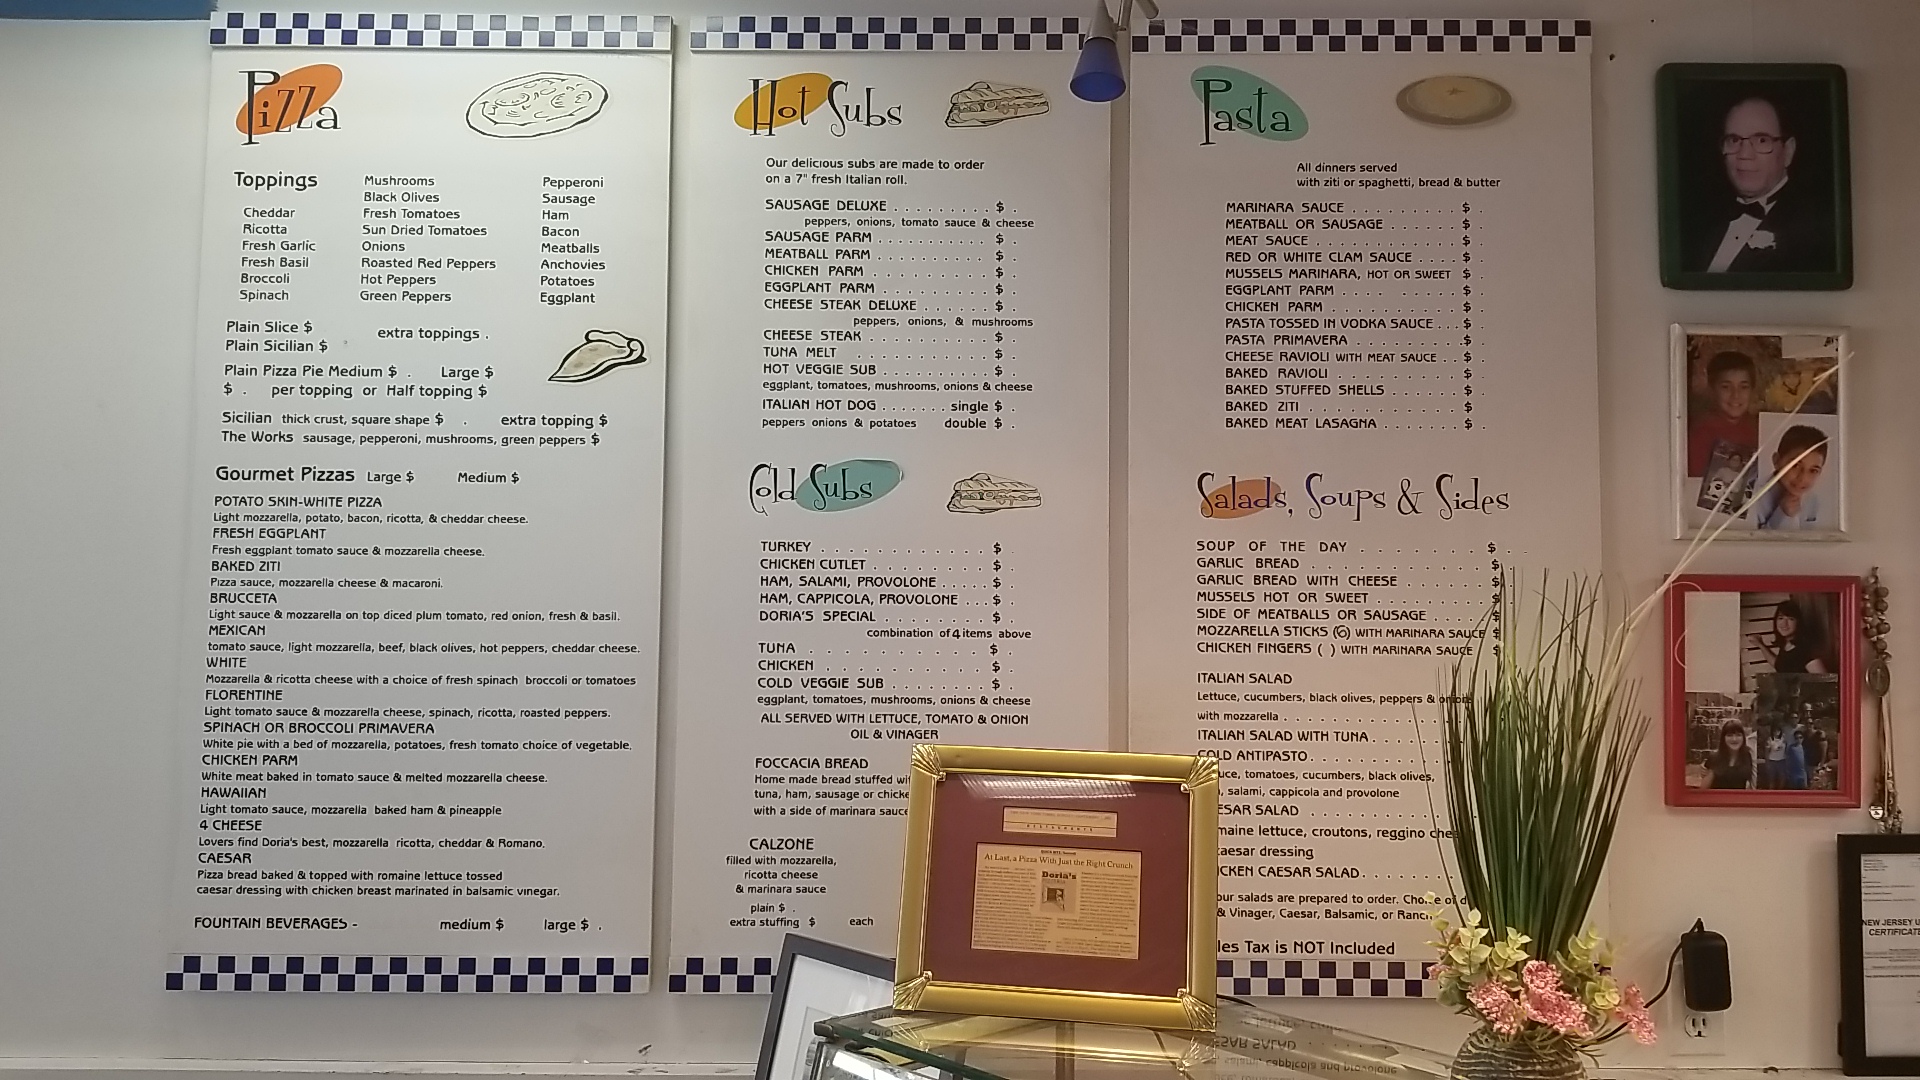 Pizza
Toppings
Cheddar
Ricotta
Fresh Garlic
Fresh Basil
Broccoli
Spinach
Mushrooms
Black Olives
Fresh Tomatoes
Sun Dried Tomatoes
Onions
Roasted Red Peppers
Hot Peppers
Green Peppers
Pepperoni
Sausage
Ham
Bacon
Meatballs
Anchovies
Potatoes
Eggplant
Plain Slice $ extra toppings .
Plain Sicilian $
Plain Pizza Pie Medium $ . Large $
$ . per topping or Half topping $
Sicilian thick crust, square shape $ . extra topping $
The Works sausage, pepperoni, mushrooms, green peppers $
Gourmet Pizzas Large $ Medium $
POTATO SKIN-WHITE PIZZA
Light mozzarella, potato, bacon, ricotta, & cheddar cheese.
FRESH EGGPLANT
Fresh eggplant tomato sauce & mozzarella cheese.
BAKED ZITI
Pizza sauce, mozzarella cheese & macaroni.
BRUCCETA
Light sauce & mozzarella on top diced plum tomato, red onion, fresh & basil.
MEXICAN
tomato sauce, light mozzarella, beef, black olives, hot peppers, cheddar cheese.
WHITE
Mozzarella & ricotta cheese with a choice of fresh spinach broccoli or tomatoes
FLORENTINE
Light tomato sauce & mozzarella cheese, spinach, ricotta, roasted peppers.
SPINACH OR BROCCOLI PRIMAVERA
White pie with a bed of mozzarella, potatoes, fresh tomato choice of vegetable.
CHICKEN PARM
White meat baked in tomato sauce & melted mozzarella cheese.
HAWAIIAN
Light tomato sauce, mozzarella baked ham & pineapple
4 CHEESE
Lovers find Doria's best, mozzarella ricotta, cheddar & Romano.
CAESAR
Pizza bread baked & topped with romaine lettuce tossed
caesar dressing with chicken breast marinated in balsamic vinegar.
FOUNTAIN BEVERAGES - medium $ large $ .
Hot Subs
Our delicious subs are made to order
on a 7" fresh Italian roll.
SAUSAGE DELUXE . . . . . . . . . $ .
peppers, onions, tomato sauce & cheese
SAUSAGE PARM . . . . . . . . . . . $ .
MEATBALL PARM . . . . . . . . . . $ .
CHICKEN PARM . . . . . . . . . . . $ .
EGGPLANT PARM . . . . . . . . . . $ .
CHEESE STEAK DELUXE . . . . . . . $ .
peppers, onions, & mushrooms
CHEESE STEAK . . . . . . . . . . . $ .
TUNA MELT . . . . . . . . . . . $ .
HOT VEGGIE SUB . . . . . . . . . . $ .
eggplant, tomatoes, mushrooms, onions & cheese
ITALIAN HOT DOG . . . . . . . single $ .
peppers onions & potatoes double $ .
Cold Subs
TURKEY . . . . . . . . . . . . $ .
CHICKEN CUTLET . . . . . . . . . . $ .
HAM, SALAMI, PROVOLONE . . . . . $ .
HAM, CAPPICOLA, PROVOLONE . . . $ .
DORIA'S SPECIAL . . . . . . . . $ .
combination of 4 items above
TUNA . . . . . . . . . . $ .
CHICKEN . . . . . . . . . . $ .
COLD VEGGIE SUB . . . . . . . . $ .
eggplant, tomatoes, mushrooms, onions & cheese
ALL SERVED WITH LETTUCE, TOMATO & ONION
OIL & VINAGER
FOCCACIA BREAD
Home made bread stuffed
tuna, ham, sausage or
with a side of marinara sauce
CALZONE
filled with mozzarella,
ricotta cheese
& marinara sauce
plain $ .
extra stuffing $ each
Pasta
All dinners served
with ziti or spaghetti, bread & butter
MARINARA SAUCE . . . . . . . . . $ .
MEATBALL OR SAUSAGE . . . . . . $ .
MEAT SAUCE . . . . . . . . . . . . $ .
RED OR WHITE CLAM SAUCE . . . . $ .
MUSSELS MARINARA, HOT OR SWEET $ .
EGGPLANT PARM . . . . . . . . . $ .
CHICKEN PARM . . . . . . . . . . . $ .
PASTA TOSSED IN VODKA SAUCE . . . $ .
PASTA PRIMAVERA . . . . . . . . . $ .
CHEESE RAVIOLI WITH MEAT SAUCE . . $ .
BAKED RAVIOLI . . . . . . . . . . $ .
BAKED STUFFED SHELLS . . . . . . $ .
BAKED ZITI . . . . . . . . . . . $ .
BAKED MEAT LASAGNA . . . . . . . $ .
Salads, Soups & Sides
SOUP OF THE DAY . . . . . . . $ .
GARLIC BREAD . . . . . . . . . . . $
GARLIC BREAD WITH CHEESE . . . . . $
MUSSELS HOT OR SWEET . . . . . . . $
SIDE OF MEATBALLS OR SAUSAGE . . . . $
MOZZARELLA STICKS (6) WITH MARINARA SAUCE $
CHICKEN FINGERS ( ) WITH MARINARA SAUCE $
ITALIAN SALAD
Lettuce, cucumbers, black olives, peppers & onions
with mozzarella . . . . . . . . . .
ITALIAN SALAD WITH TUNA . . . .
COLD ANTIPASTO . . . . . . . .
tomatoes, cucumbers, black olives,
salami, cappicola and provolone
SALAD
lettuce, croutons, reggino
caesar dressing
CAESAR SALAD . . . . . . .
salads are prepared to order. Choice of
& Vinager, Caesar, Balsamic, or Ranch
Tax is NOT Included
RESTAURANTS
At Last, a Pizza With Just the Right Crunch
Doria's
NEW JERSEY